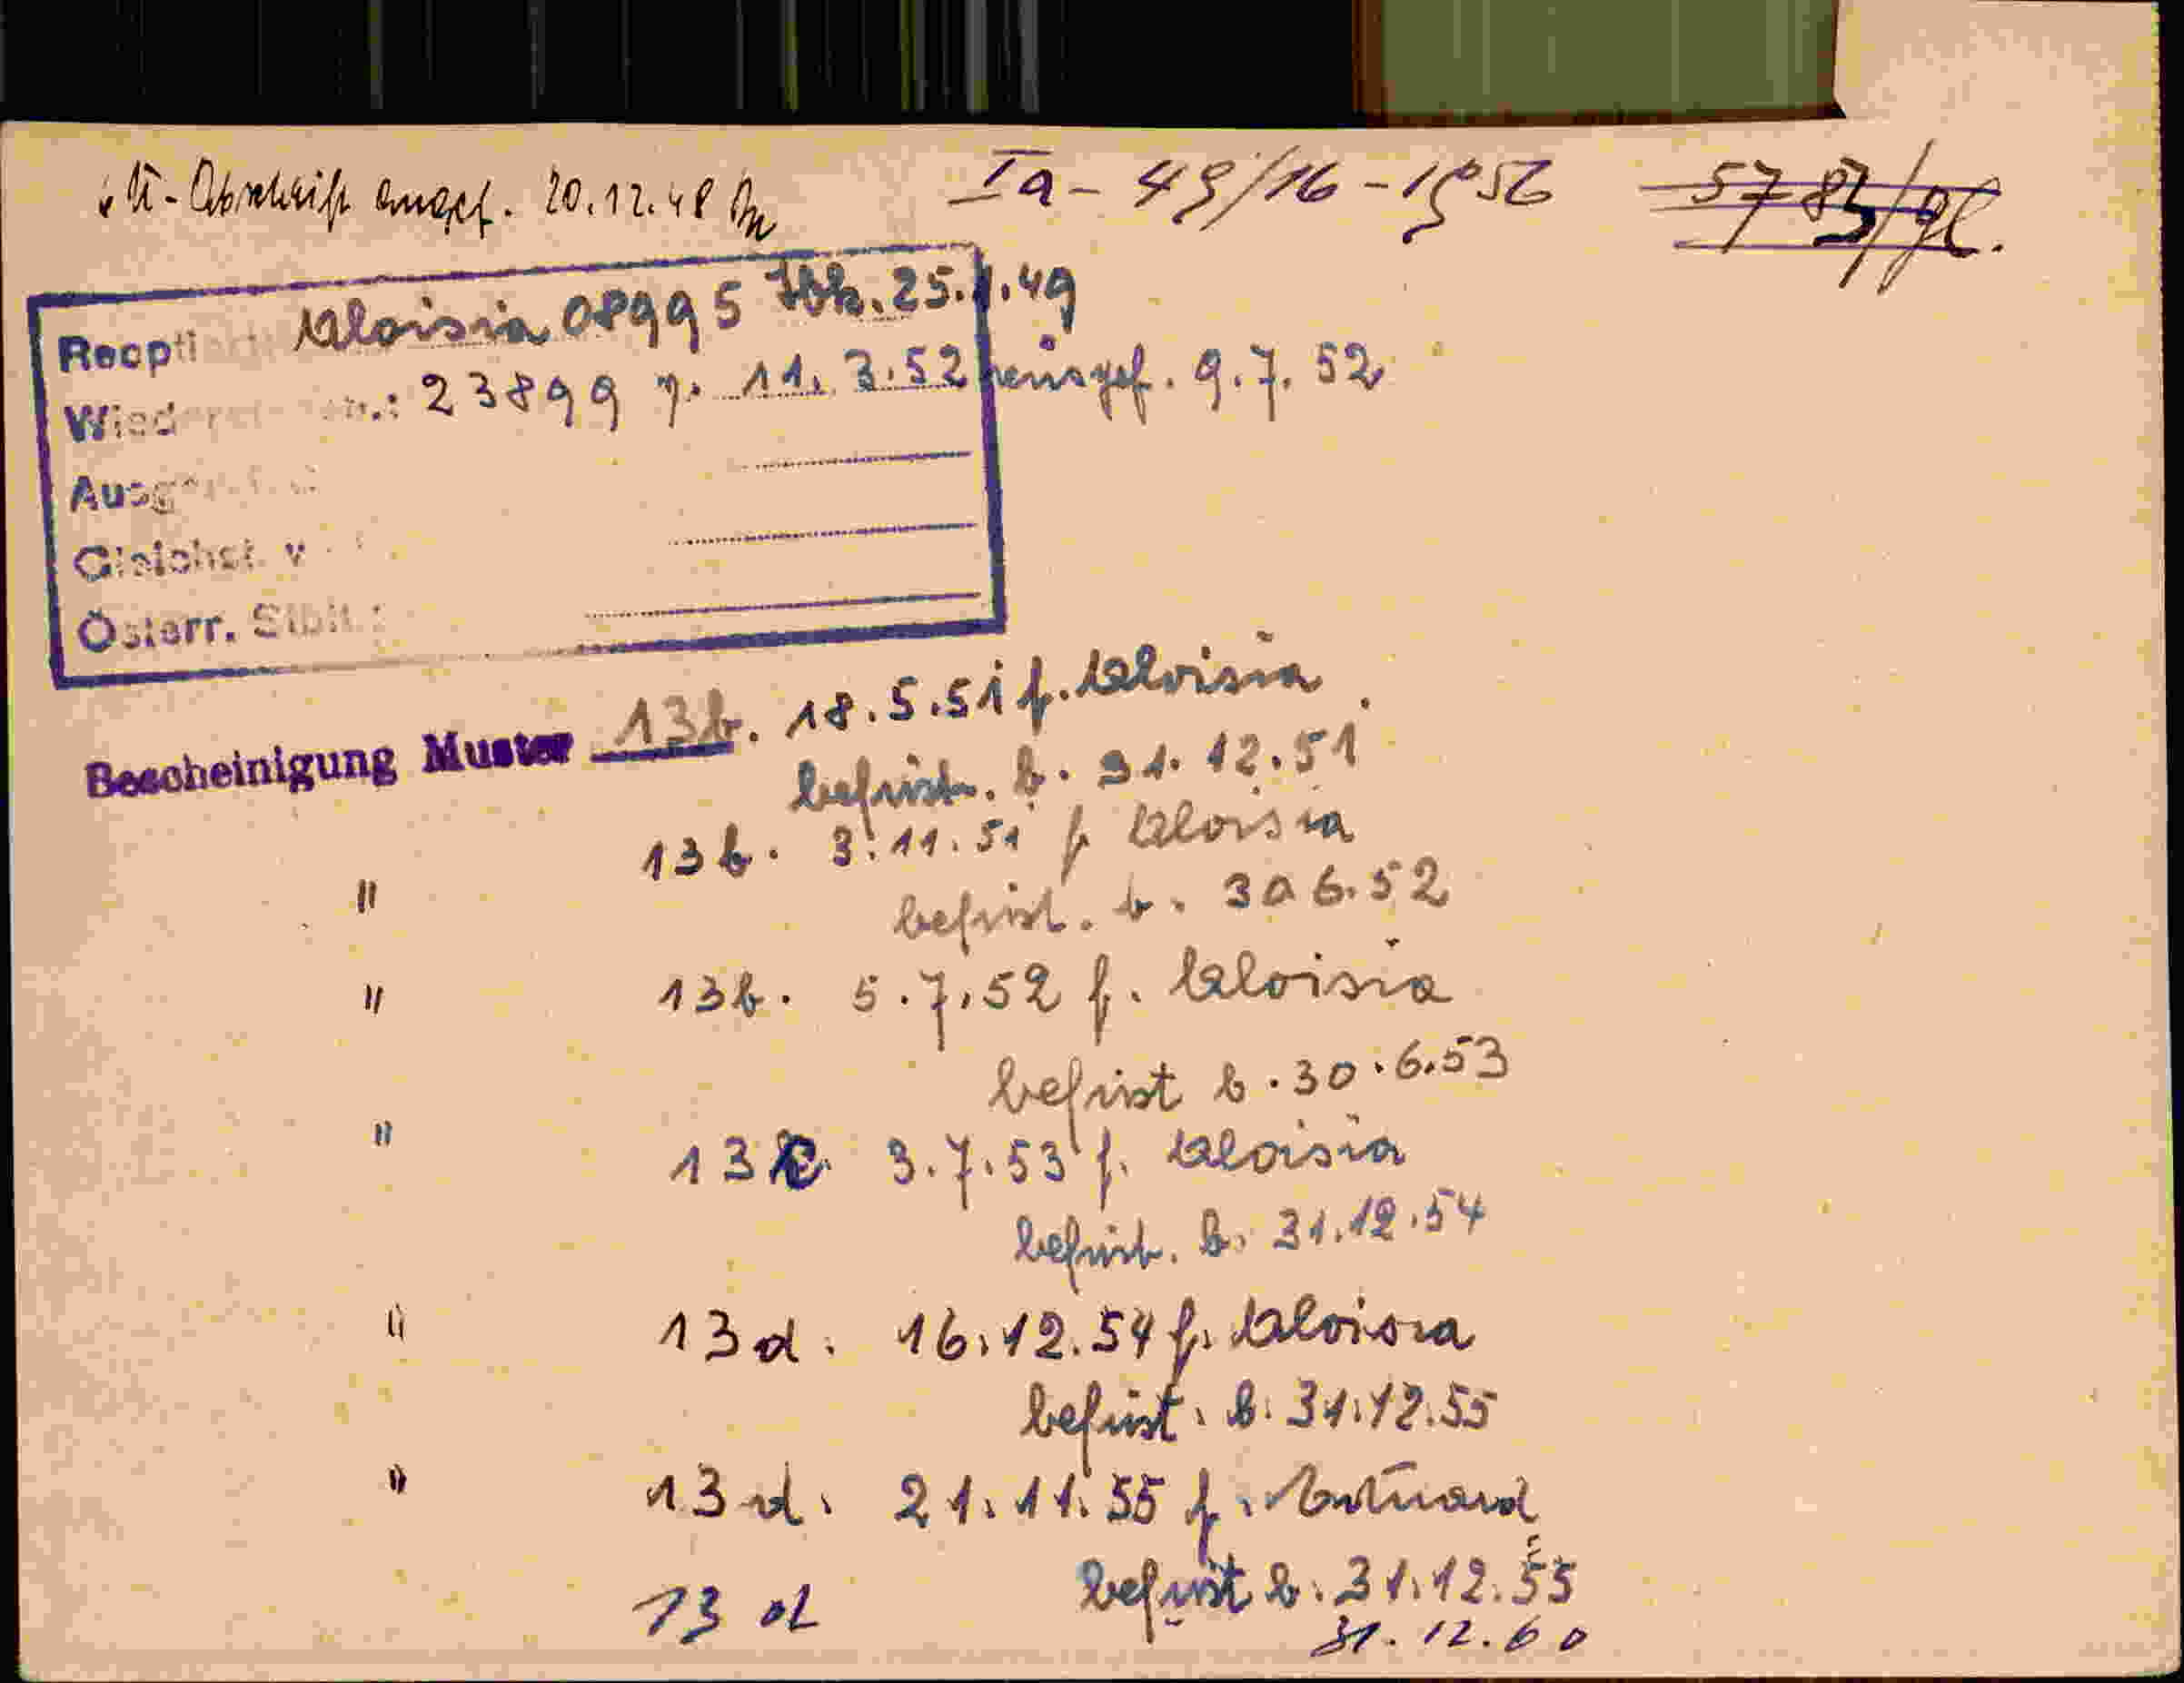 Abschrift angef. 20.12.48
Ia - 49/16 - 1956
5783/
Aloisia 08995 25.1.49
23899 11.3.52 9.7.52
Österr.
Bescheinigung Muster 13b. 18.5.51 f. Aloisia
befrist. b. 31.12.51
" 13b. 3.11.51 f. Aloisia
befrist. b. 30.6.52
" 13b. 5.7.52 f. Aloisia
befrist b. 30.6.53
" 13c 3.7.53 f. Aloisia
befrist. b. 31.12.54
" 13d. 16.12.54 f. Aloisia
befrist. b. 31.12.55
" 13d. 21.11.55 f.
befrist b. 31.12.55
13d 31.12.60